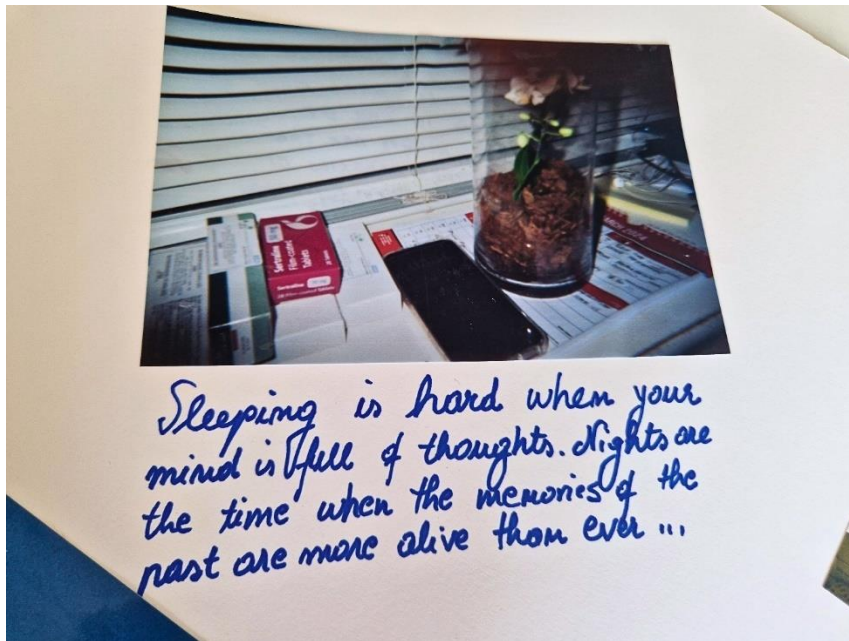 Sertraline
Film-coated
Tablets
Sertraline
Sleeping is hard when your
mind is full of thoughts. Nights are
the time when the memories of the
past are more alive than ever ...